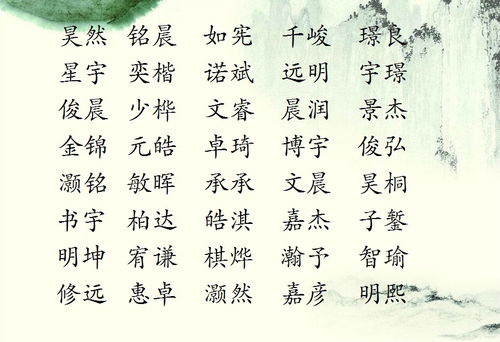 昊然 铭晨 如宪 千峻 璟良
星宇 奕楷 诺斌 远明 宇璟
俊晨 少桦 文睿 晨润 景杰
金锦 元皓 卓琦 博宇 俊弘
灏铭 敏晖 承承 文晨 昊桐
书宇 柏达 皓淇 嘉杰 子錾
明坤 宥谦 棋烨 瀚予 智瑜
修远 惠卓 灏然 嘉彦 明熙